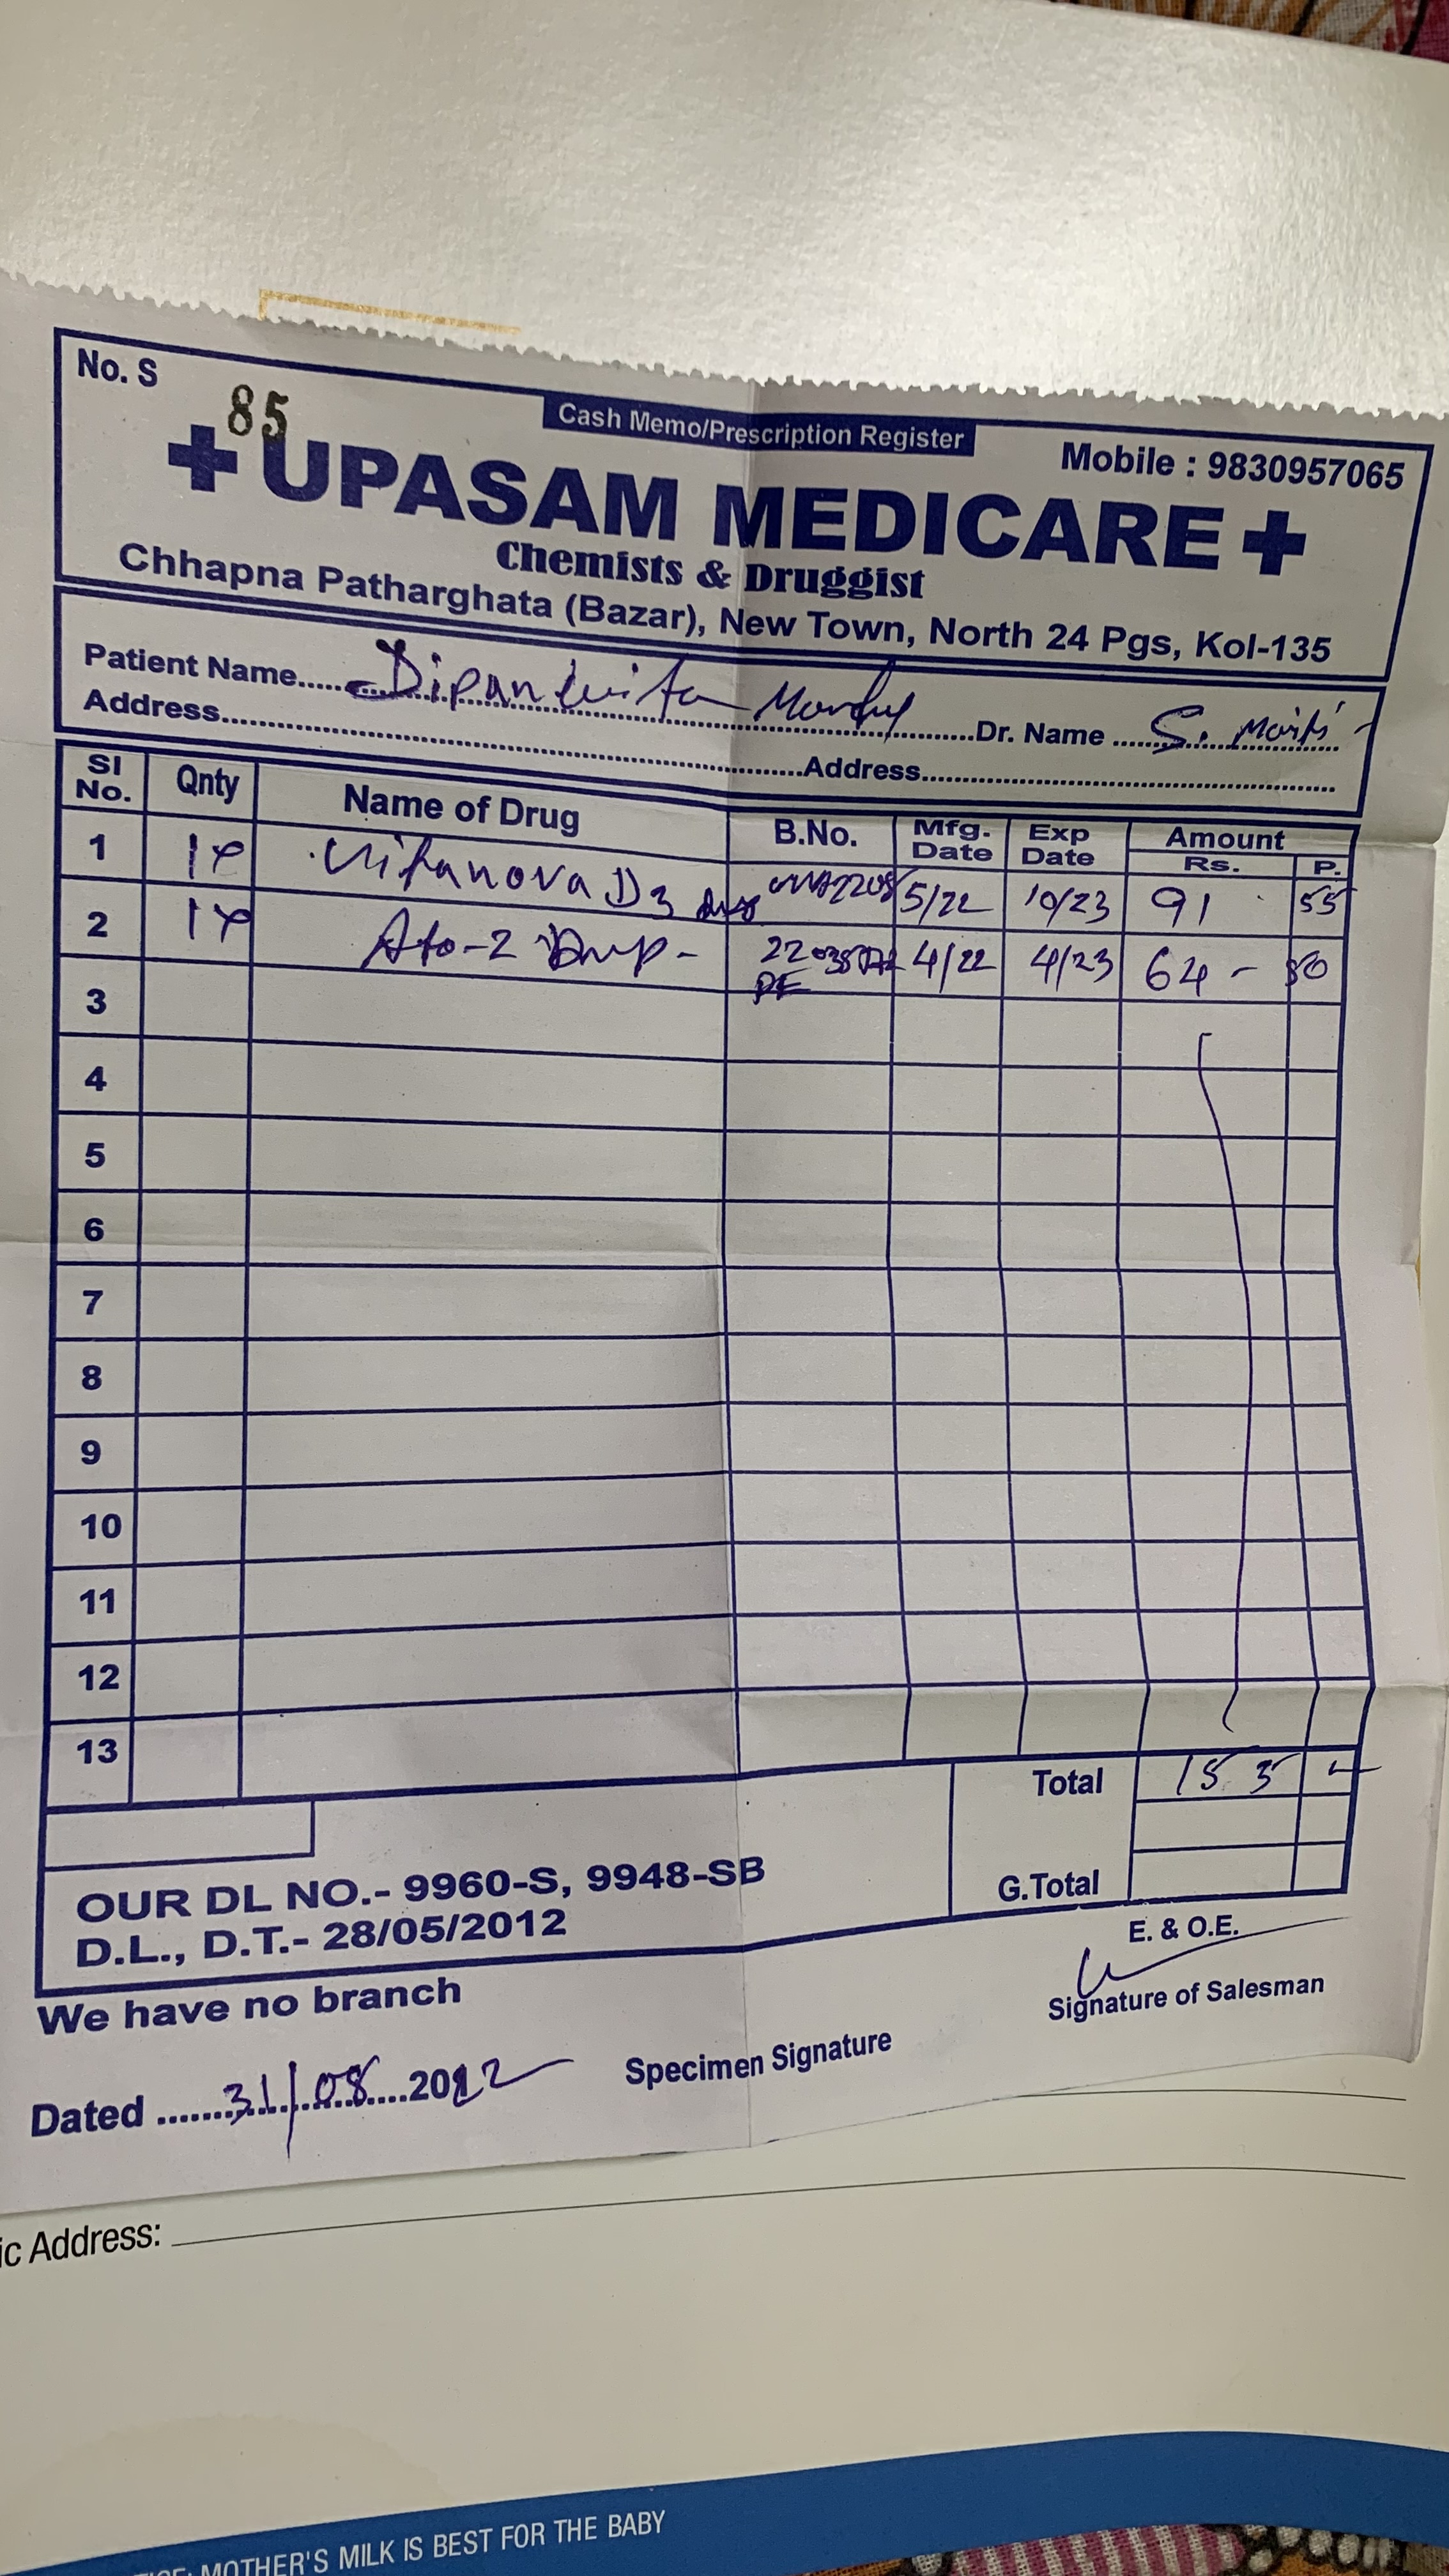 No. S 85
Cash Memo/Prescription Register
Mobile : 9830957065
UPASAM MEDICARE
Chemists & Druggist
Chhapna Patharghata (Bazar), New Town, North 24 Pgs, Kol-135
Patient Name..... Dipanwita ...Dr. Name ..... S. Maiti
Address.....Address.....
Sl No. Qnty Name of Drug B.No. Mfg. Date Exp Date Amount Rs. P.
1 Vitanova D3 5/22 10/23 91 55
2 Ato-2 4/22 4/23 64 - 50
3
4
5
6
7
8
9
10
11
12
13
Total 153
G.Total
OUR DL NO.- 9960-S, 9948-SB
D.L., D.T.- 28/05/2012
E. & O.E.
We have no branch
Signature of Salesman
Specimen Signature
Dated ..... 31/08 .....2022
ic Address:
MOTHER'S MILK IS BEST FOR THE BABY